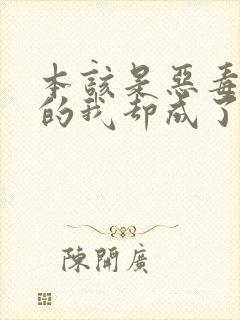 本該是惡毒
的我却成了
陳開廣